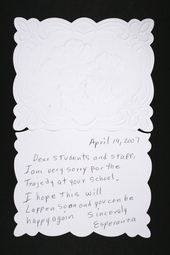 April 19, 2007
Dear students and staff,
I am very sorry for the
Trajedy at your school.
I hope this will
Lappen soon and you can be
happy again Sincerely
Esperanza